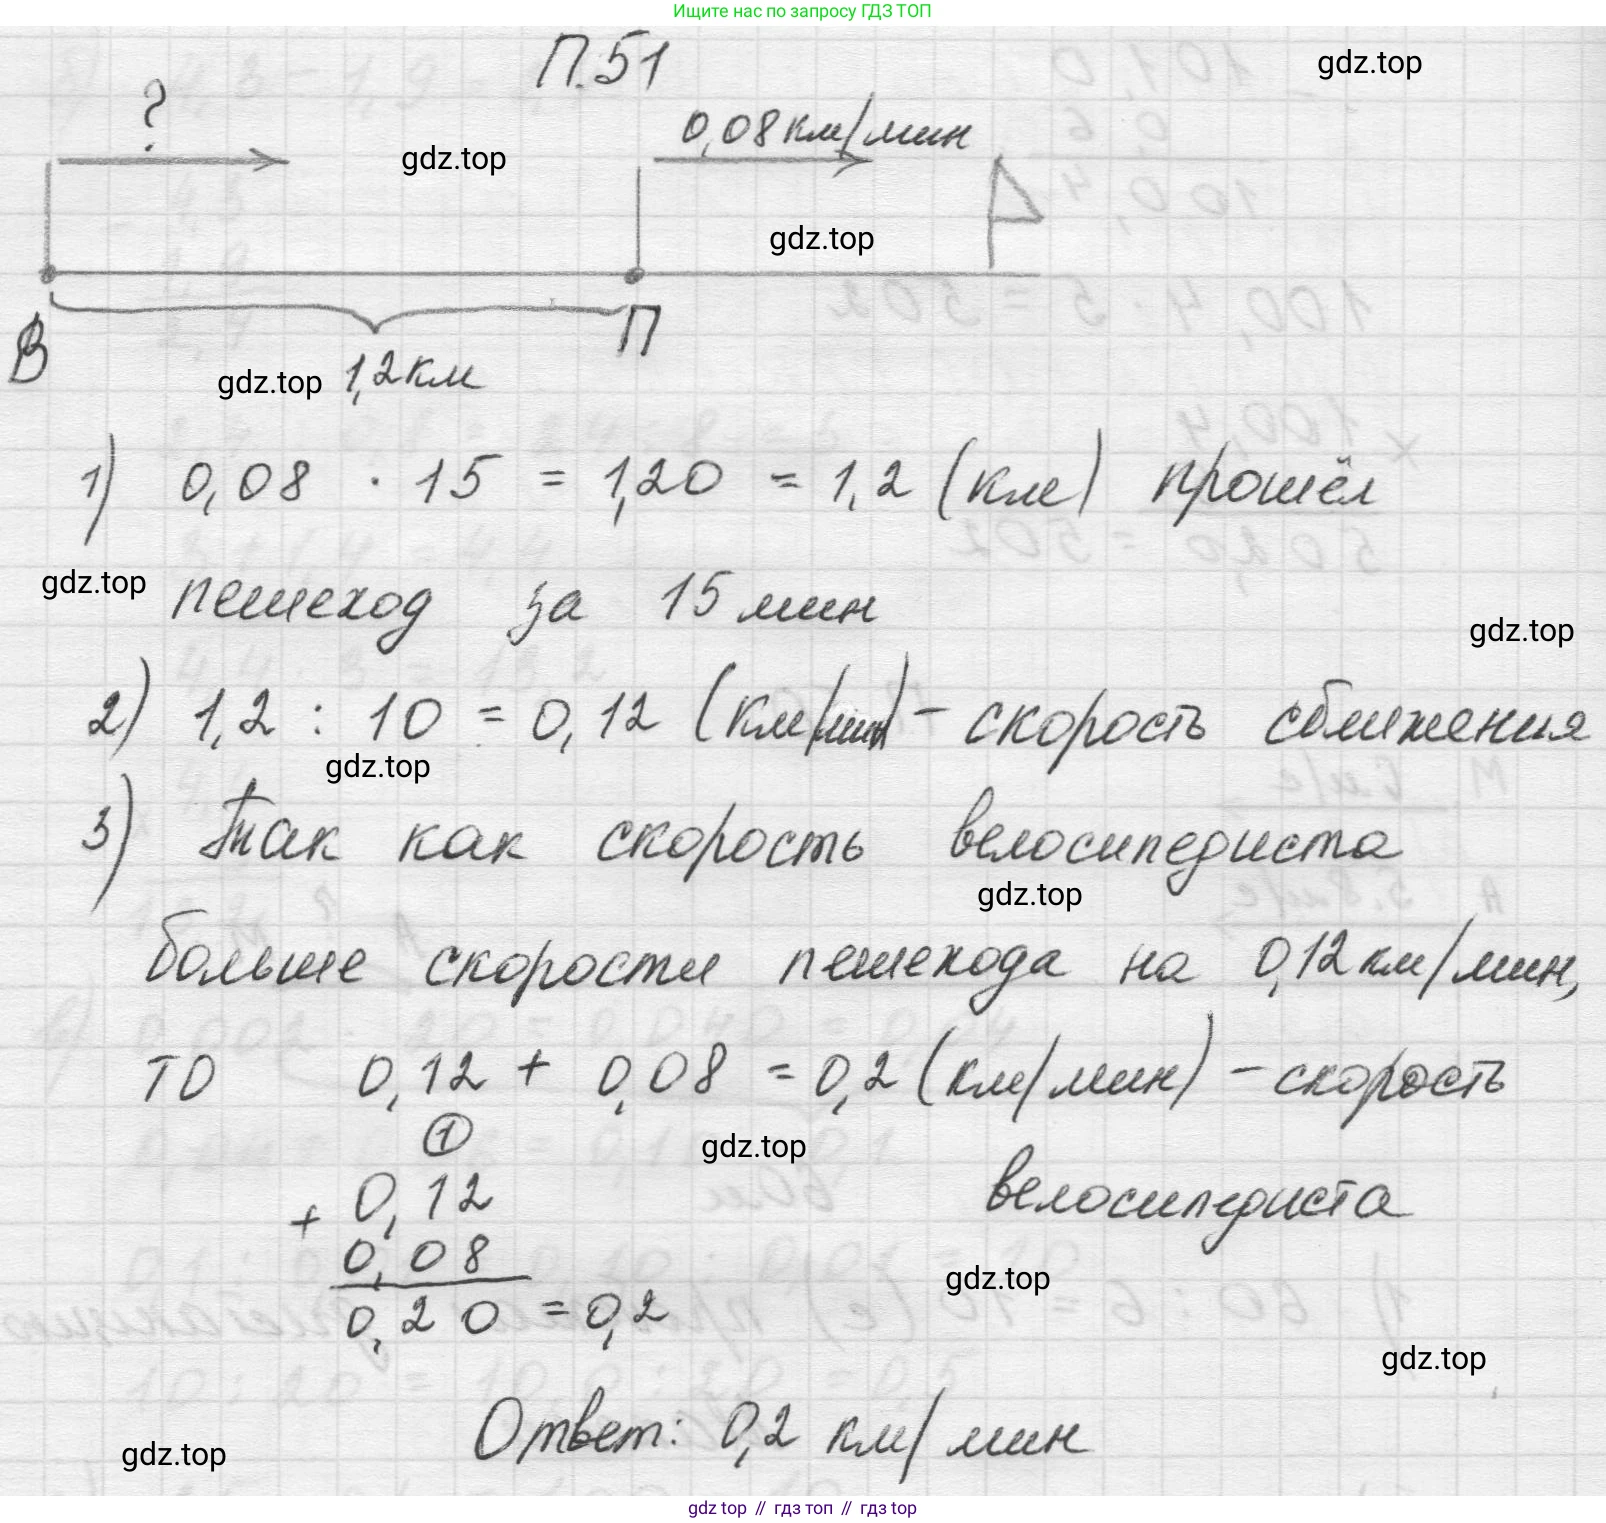 Ищите нас по запросу ГДЗ ТОП
П.51
gdz.top
?
0,08 км/мин
gdz.top
gdz.top
В
П
gdz.top
1,2 км
1) 0,08 · 15 = 1,20 = 1,2 (км) прошёл
gdz.top
пешеход за 15 мин
gdz.top
2) 1,2 : 10 = 0,12 (км/мин) – скорость сближения
gdz.top
3) Так как скорость велосипедиста
gdz.top
больше скорости пешехода на 0,12 км/мин,
то 0,12 + 0,08 = 0,2 (км/мин) – скорость
велосипедиста
gdz.top
1
+ 0,12
0,08
0,20 = 0,2
gdz.top
gdz.top
Ответ: 0,2 км/мин
gdz.top
gdz top // гдз топ // гдз top